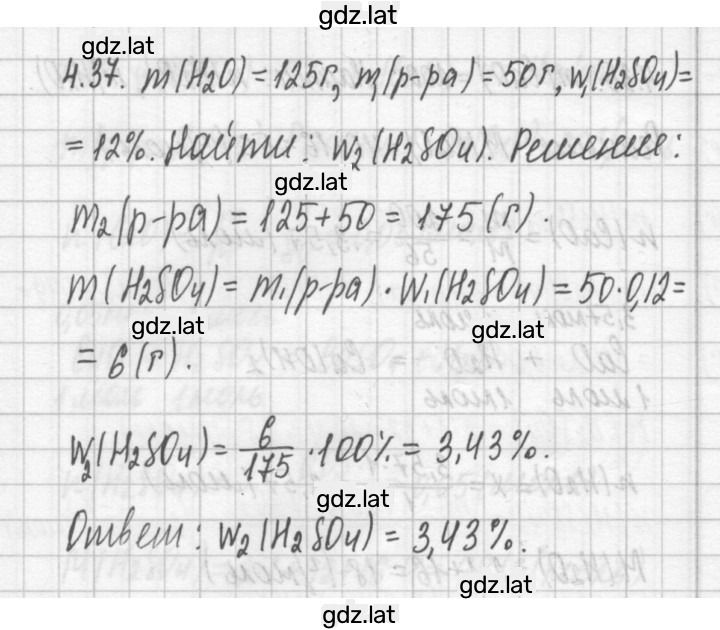 gdz.lat
gdz.lat
4.37. m(H₂O) = 125г, m₁(р-ра) = 50г, w₁(H₂SO₄)=
= 12%. Найти: w₂(H₂SO₄). Решение:
gdz.lat
m₂(р-ра) = 125+50 = 175(г).
m(H₂SO₄) = m₁(р-ра)·w₁(H₂SO₄) = 50·0,12=
gdz.lat gdz.lat
= 6(г).
w₂(H₂SO₄) = 6/175 ·100% = 3,43%.
gdz.lat
Ответ: w₂(H₂SO₄) = 3,43%.
gdz.lat
gdz.lat